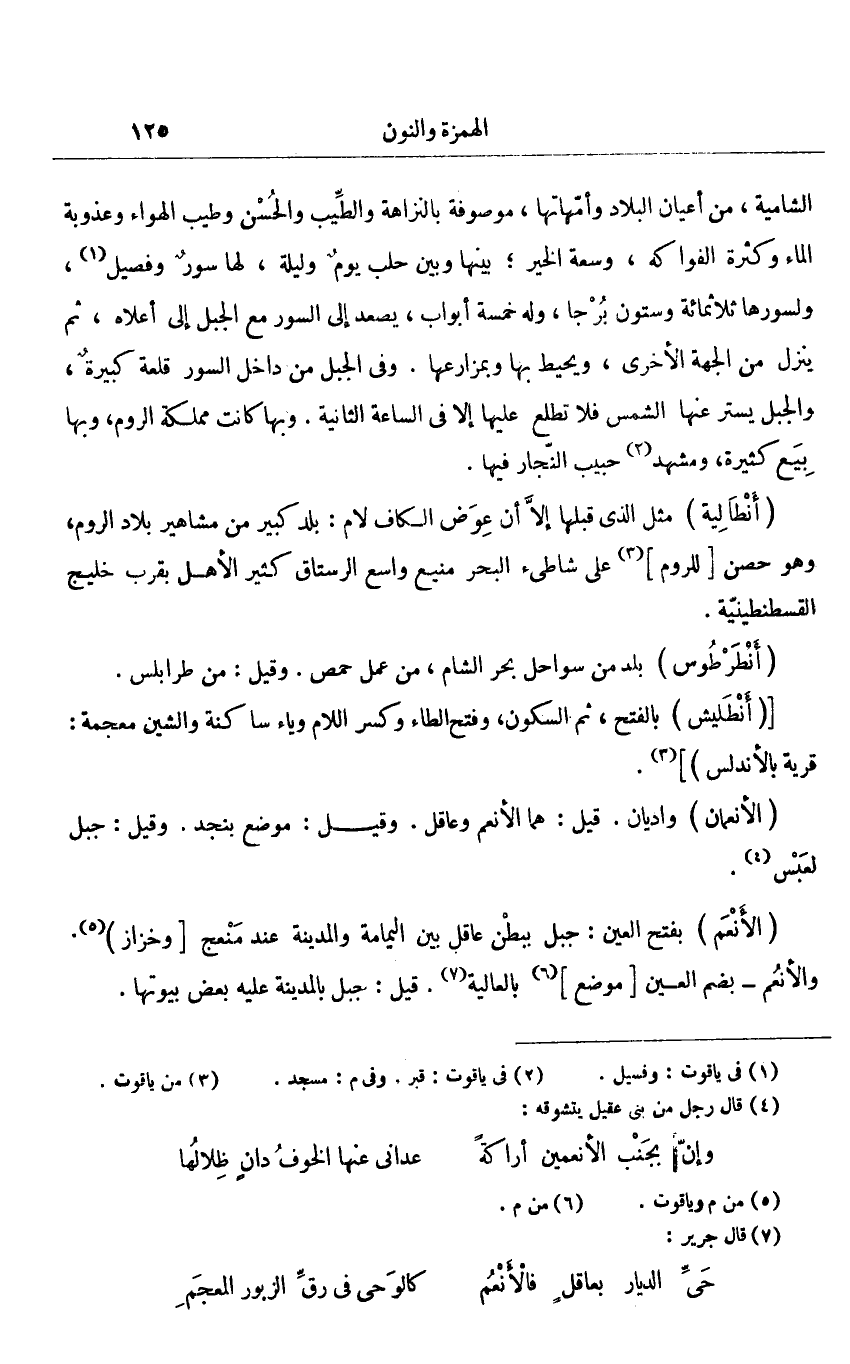 الهمزة والنون ١٢٥
الشامية ، من أعيان البلاد وأمّهاتها ، موصوفة بالنزاهة والطِّيب والحُسْن وطيب الهواء وعذوبة
الماء وكثرة الفواكه ، وسعة الخير ؛ بينها وبين حلب يومٌ وليلة ، لها سورٌ وفصيل(١) ،
ولسورها ثلاثمائة وستون بُرْجا ، وله خمسة أبواب ، يصعد إلى السور مع الجبل إلى أعلاه ، ثم
ينزل من الجهة الأخرى ، ويحيط بها وبمزارعها . وفى الجبل من داخل السور قلعة كبيرةٌ ،
والجبل يستر عنها الشمس فلا تطلع عليها إلا فى الساعة الثانية . وبها كانت مملكة الروم، وبها
بِيَع كثيرة، ومشهد(٢) حبيب النّجار فيها .
( أَنْطَالِية ) مثل الذى قبلها إلاَّ أن عِوَض الكاف لام : بلد كبير من مشاهير بلاد الروم،
وهو حصن [ للروم ](٣) على شاطىء البحر منيع واسع الرستاق كثير الأهل بقرب خليج
القسطنطينيّة .
( أَنْطَرْطُوس ) بلد من سواحل بحر الشام ، من عمل حمص . وقيل : من طرابلس .
[( أَنْطَليش ) بالفتح ، ثم السكون، وفتح الطاء وكسر اللام وياء ساكنة والشين معجمة :
قرية بالأندلس )](٣) .
( الأنعمان ) واديان . قيل : هما الأنعم وعاقل . وقيل : موضع بنجد . وقيل : جبل
لعَبْس(٤) .
( الأَنْعَم ) بفتح العين : جبل ببطْن عاقل بين اليمامة والمدينة عند مَنْعج [ وخزاز )(٥).
والأنعُم – بضم العين [ موضع ](٦) بالعالية(٧) . قيل : جبل بالمدينة عليه بعض بيوتها .
(١) فى ياقوت : وفسيل . (٢) فى ياقوت : قبر . وفى م : مسجد . (٣) من ياقوت .
(٤) قال رجل من بنى عقيل يتشوقه :
وإنّ بجَنْب الأنعمين أراكةً عدانى عنها الخوفُ دانٍ ظِلالُها
(٥) من م وياقوت . (٦) من م .
(٧) قال جرير :
حَىِّ الديار بعاقلٍ فالْأَنْعُم كالوَحى فى رقِّ الزبور المعجَمِ